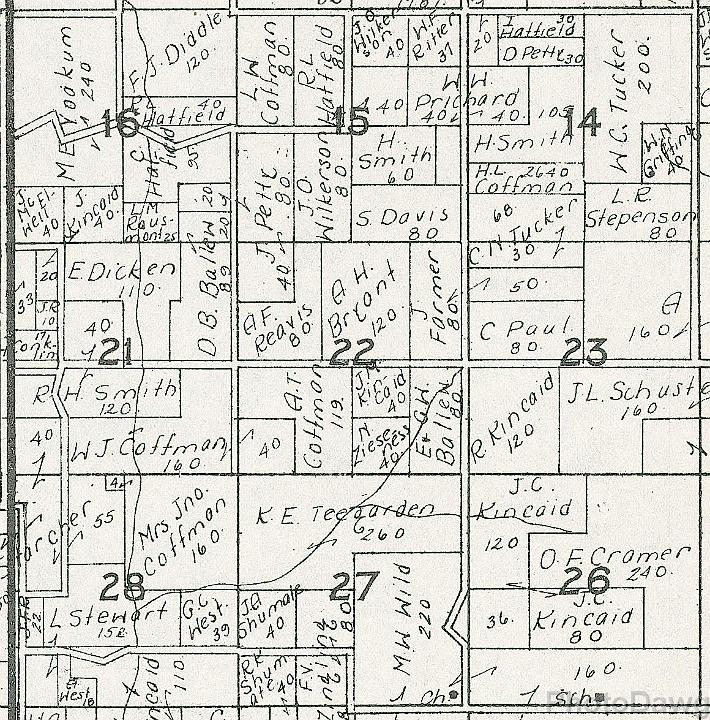 M E Yookum
240
F. J. Diddle
120.
R L Hatfield
40
16
L W Coffman
80.
R L Hatfield
80
J. O. Wilkerson
40
W. F. Ritter
37
20
Hatfield
30
D Petty 30
W. C. Tucker
200.
40
W W. Prichard
40
40
105
15
14
H. Smith
60
H. Smith
H. L. Coffman
2640
W. N. Griffing
40
C. Hatfield
95
J. McElwell
40
J. Kincaid
40.
L M Rausmont 25
20
20
D B. Ballew
89
J. Petty
80.
40
J. O. Wilkerson
80.
S. Davis
80
68
C. N. Tucker
30
L. R. Stepenson
80
20
33
J. R.
10
17
Conklin
E. Dicken
110.
40
21
A. F. Reavis
80.
A H. Bryant
120.
22
J Farmer
80
50.
C Paul.
80.
A
160
23
R
H. Smith
120
A. T. Coffman
119.
J. M. Kincaid
40
N Zieseness
40
E & G. W. Ballew
80
R Kincaid
120
J. L. Schuste
160.
40
W J. Coffman
160
40
4
55
archer
Mrs. Jno. Coffman
160.
K. E. Teegarden
260
J. C. Kincaid
120
O. F. Cramer
240.
28
27
26
22
L Stewart
158
G. C. West.
39
J. A. Shumate
40
80
M W Wild
220
36.
J. C. Kincaid
80
West
18
ncaid
110.
R K Shumate
40
F. V. Zindling
1 Ch.
160.
1 Sch.
PhotoDawg